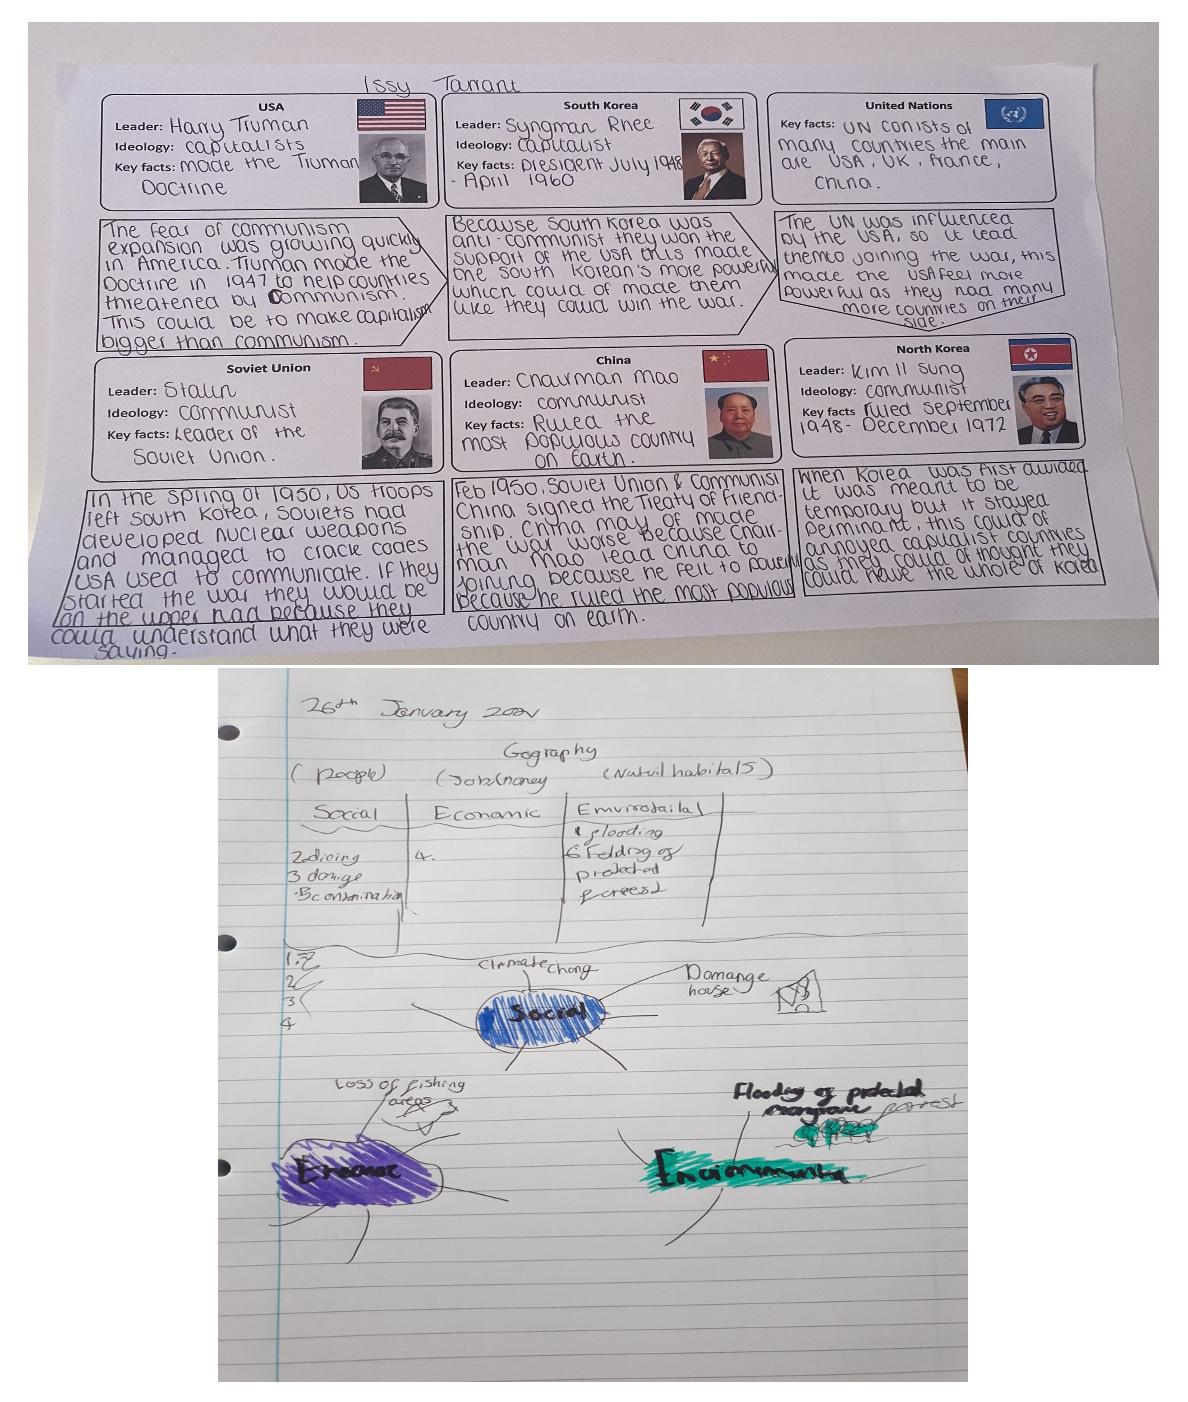 Issy Tarrant
USA
Leader: Harry Truman
Ideology: capitalists
Key facts: made the Truman
Doctrine
South Korea
Leader: Syngman Rhee
Ideology: capitalist
Key facts: president July 1948
- April 1960
United Nations
Key facts: UN conists of
many countries the main
are USA, UK, France,
China.
The fear of communism
expansion was growing quickly
in America. Truman made the
Doctrine in 1947 to help countries
threatened by communism.
This could be to make capitalism
bigger than communism.
Because South Korea was
anti-communist they won the
support of the USA this made
the South Korean's more powerful
which could of made them
like they could win the war.
The UN was influenced
by the USA, so it lead
them to joining the war, this
made the USA feel more
powerful as they had many
more countries on their
side.
Soviet Union
Leader: Stalin
Ideology: communist
Key facts: Leader of the
Soviet Union.
China
Leader: Chairman Mao
Ideology: communist
Key facts: Ruled the
most populous country
on Earth.
North Korea
Leader: Kim Il Sung
Ideology: communist
Key facts ruled September
1948- December 1972
In the spring of 1950, US troops
left South Korea, Soviets had
developed nuclear weapons
and managed to crack codes
USA used to communicate. If they
started the war they would be
on the upper had because they
could understand what they were
saying.
Feb 1950, Soviet Union & Communist
China signed the Treaty of Friend-
ship. China may of made
the war worse because Chair-
man Mao lead China to
joining because he felt to powerful
because he ruled the most populous
country on earth.
When Korea was first divided
it was meant to be
temporary but it stayed
perminant, this could of
annoyed capitalist countries
as they could of thought they
could have the whole of Korea
26th January
Gography
(people) (Job/money (Natuil habitals)
Social Economic
1 flooding
2. 4. 6 of
3 protected
5
1.
2
3
4
Climate chang
Damange
house
Social
Loss of fishing
areas
Flooding of